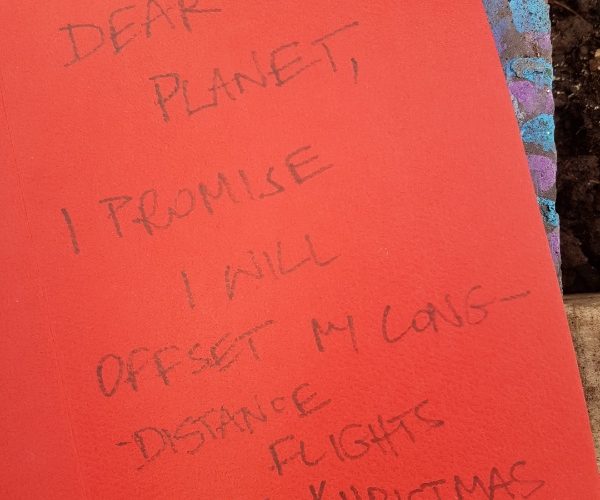 DEAR
PLANET,
I PROMISE
I WILL
OFFSET MY LONG-
-DISTANCE
FLIGHTS